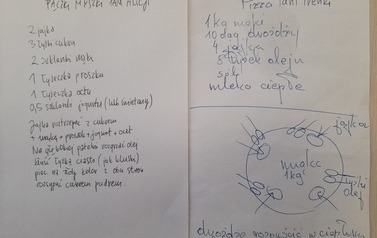 PĄCZKI MYSZKI PANI ALICJI
2 jajka
3 łyżki cukru
2 szklanki mąki
1 łyżeczka proszku
1 łyżeczka octu
0,5 szklanki jogurtu (lub śmietany)
Jajka rozrzepać z cukrem
+ mąka + proszek + jogurt + ocet
Na głębokiej patelni rozgrzać olej
kłaść łyżką ciasto (jak kluski)
piec na złoty kolor z obu stron
posypać cukrem pudrem
Pizza Pani Irenki
1 kg mąki
10 dag drożdży
4 jajka
8 łyżek oleju
sól
mleko ciepłe
jajka
mąka
1 kg
łyżki
olej
drożdże rozpuścić w ciepłym